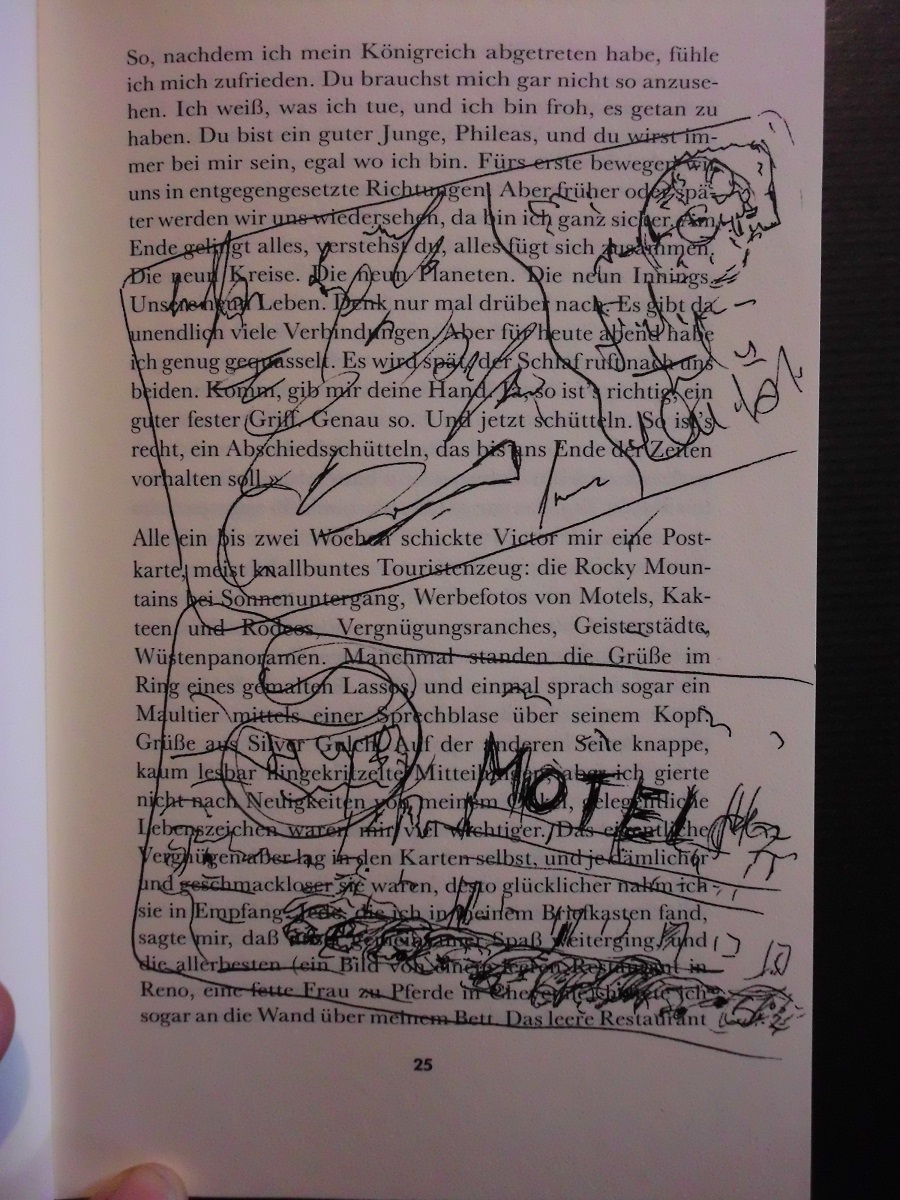 So, nachdem ich mein Königreich abgetreten habe, fühle
ich mich zufrieden. Du brauchst mich gar nicht so anzuse-
hen. Ich weiß, was ich tue, und ich bin froh, es getan zu
haben. Du bist ein guter Junge, Phileas, und du wirst im-
mer bei mir sein, egal wo ich bin. Fürs erste bewegen wir
uns in entgegengesetzte Richtungen. Aber früher oder spä-
ter werden wir uns wiedersehen, da bin ich ganz sicher. Am
Ende gelingt alles, verstehst du, alles fügt sich zusammen.
Die neun Kreise. Die neun Planeten. Die neun Innings.
Unsere neun Leben. Denk nur mal drüber nach. Es gibt da
unendlich viele Verbindungen. Aber für heute abend habe
ich genug gequasselt. Es wird spät, der Schlaf ruft nach uns
beiden. Komm, gib mir deine Hand. Ja, so ist's richtig, ein
guter fester Griff. Genau so. Und jetzt schütteln. So ist's
recht, ein Abschiedsschütteln, das bis ans Ende der Zeiten
vorhalten soll.»
Alle ein bis zwei Wochen schickte Victor mir eine Post-
karte, meist knallbuntes Touristenzeug: die Rocky Moun-
tains bei Sonnenuntergang, Werbefotos von Motels, Kak-
teen und Rodeos, Vergnügungsranches, Geisterstädte,
Wüstenpanoramen. Manchmal standen die Grüße im
Ring eines gemalten Lassos, und einmal sprach sogar ein
Maultier mittels einer Sprechblase über seinem Kopf:
Grüße aus Silver Gulch. Auf der anderen Seite knappe,
kaum lesbar hingekritzelte Mitteilungen, aber ich gierte
nicht nach Neuigkeiten von meinem Onkel, gelegentliche
MOTEL
Lebenszeichen waren mir viel wichtiger. Das eigentliche
Vergnügen aber lag in den Karten selbst, und je dämlicher
und geschmackloser sie waren, desto glücklicher nahm ich
sie in Empfang. Jede, die ich in meinem Briefkasten fand,
sagte mir, daß unser gemeinsamer Spaß weiterging, und
die allerbesten (ein Bild von einem leeren Restaurant in
Reno, eine fette Frau zu Pferde in Cheyenne) heftete ich
sogar an die Wand über meinem Bett. Das leere Restaurant
25